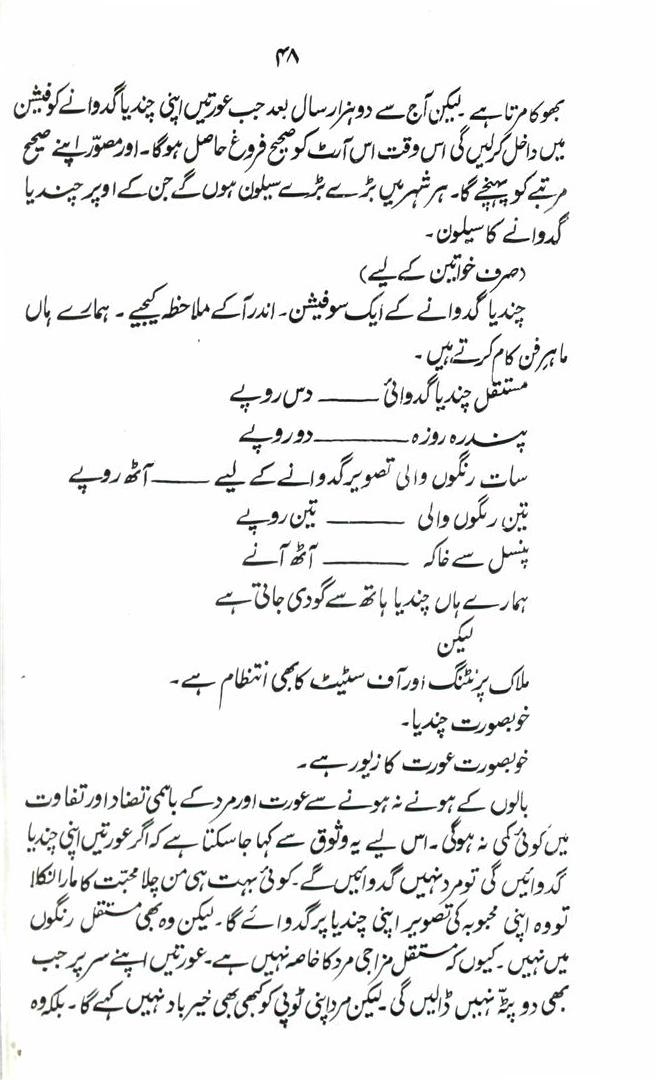 ۴۸
بھوکا مرتا ہے۔ لیکن آج سے دو ہزار سال بعد جب عورتیں اپنی چندیا گدوانے کو فیشن
میں داخل کر لیں گی اس وقت اس آرٹ کو صحیح فروغ حاصل ہوگا۔ اور مصوّر اپنے صحیح
مرتبے کو پہنچے گا۔ ہر شہر میں بڑے بڑے سیلون ہوں گے جن کے اوپر چندیا
گدوانے کا سیلون۔
(صرف خواتین کے لیے)
چندیا گدوانے کے ایک سو فیشن۔ اندر آ کے ملاحظہ کیجیے۔ ہمارے ہاں
ماہرِ فن کام کرتے ہیں۔
مستقل چندیا گدوائی ——— دس روپے
پندرہ روزہ ——— دو روپے
سات رنگوں والی تصویر گدوانے کے لیے ——— آٹھ روپے
تین رنگوں والی ——— تین روپے
پنسل سے خاکہ ——— آٹھ آنے
ہمارے ہاں چندیا ہاتھ سے گودی جاتی ہے
لیکن
ملاک پرنٹنگ اور آف سٹیٹ کا بھی انتظام ہے۔
خوبصورت چندیا۔
خوبصورت عورت کا زیور ہے۔
بالوں کے ہونے نہ ہونے سے عورت اور مرد کے باہمی تضاد اور تفاوت
میں کوئی کمی نہ ہوگی۔ اس لیے یہ وثوق سے کہا جا سکتا ہے کہ اگر عورتیں اپنی چندیا
گدوائیں گی تو مرد نہیں گدوائیں گے۔ کوئی بہت ہی من چلا محبّت کا مارا نکلا
تو وہ اپنی محبوبہ کی تصویر اپنی چندیا پر گدوائے گا۔ لیکن وہ بھی مستقل رنگوں
میں نہیں۔ کیوں کہ مستقل مزاجی مرد کا خاصہ نہیں ہے۔ عورتیں اپنے سر پر جب
بھی دوپٹّہ نہیں ڈالیں گی۔ لیکن مرد اپنی ٹوپی کو کبھی بھی خیر باد نہیں کہے گا۔ بلکہ وہ